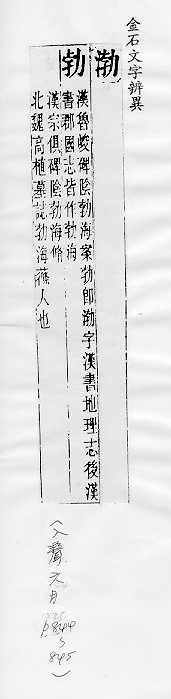 金石文字辨異
勃
勃
漢魯峻碑陰勃海案勃即渤字漢書地理志後漢
書郡國志皆作勃海
漢宗俱碑陰勃海脩
北魏高植墓誌勃海蓨人也
844
845